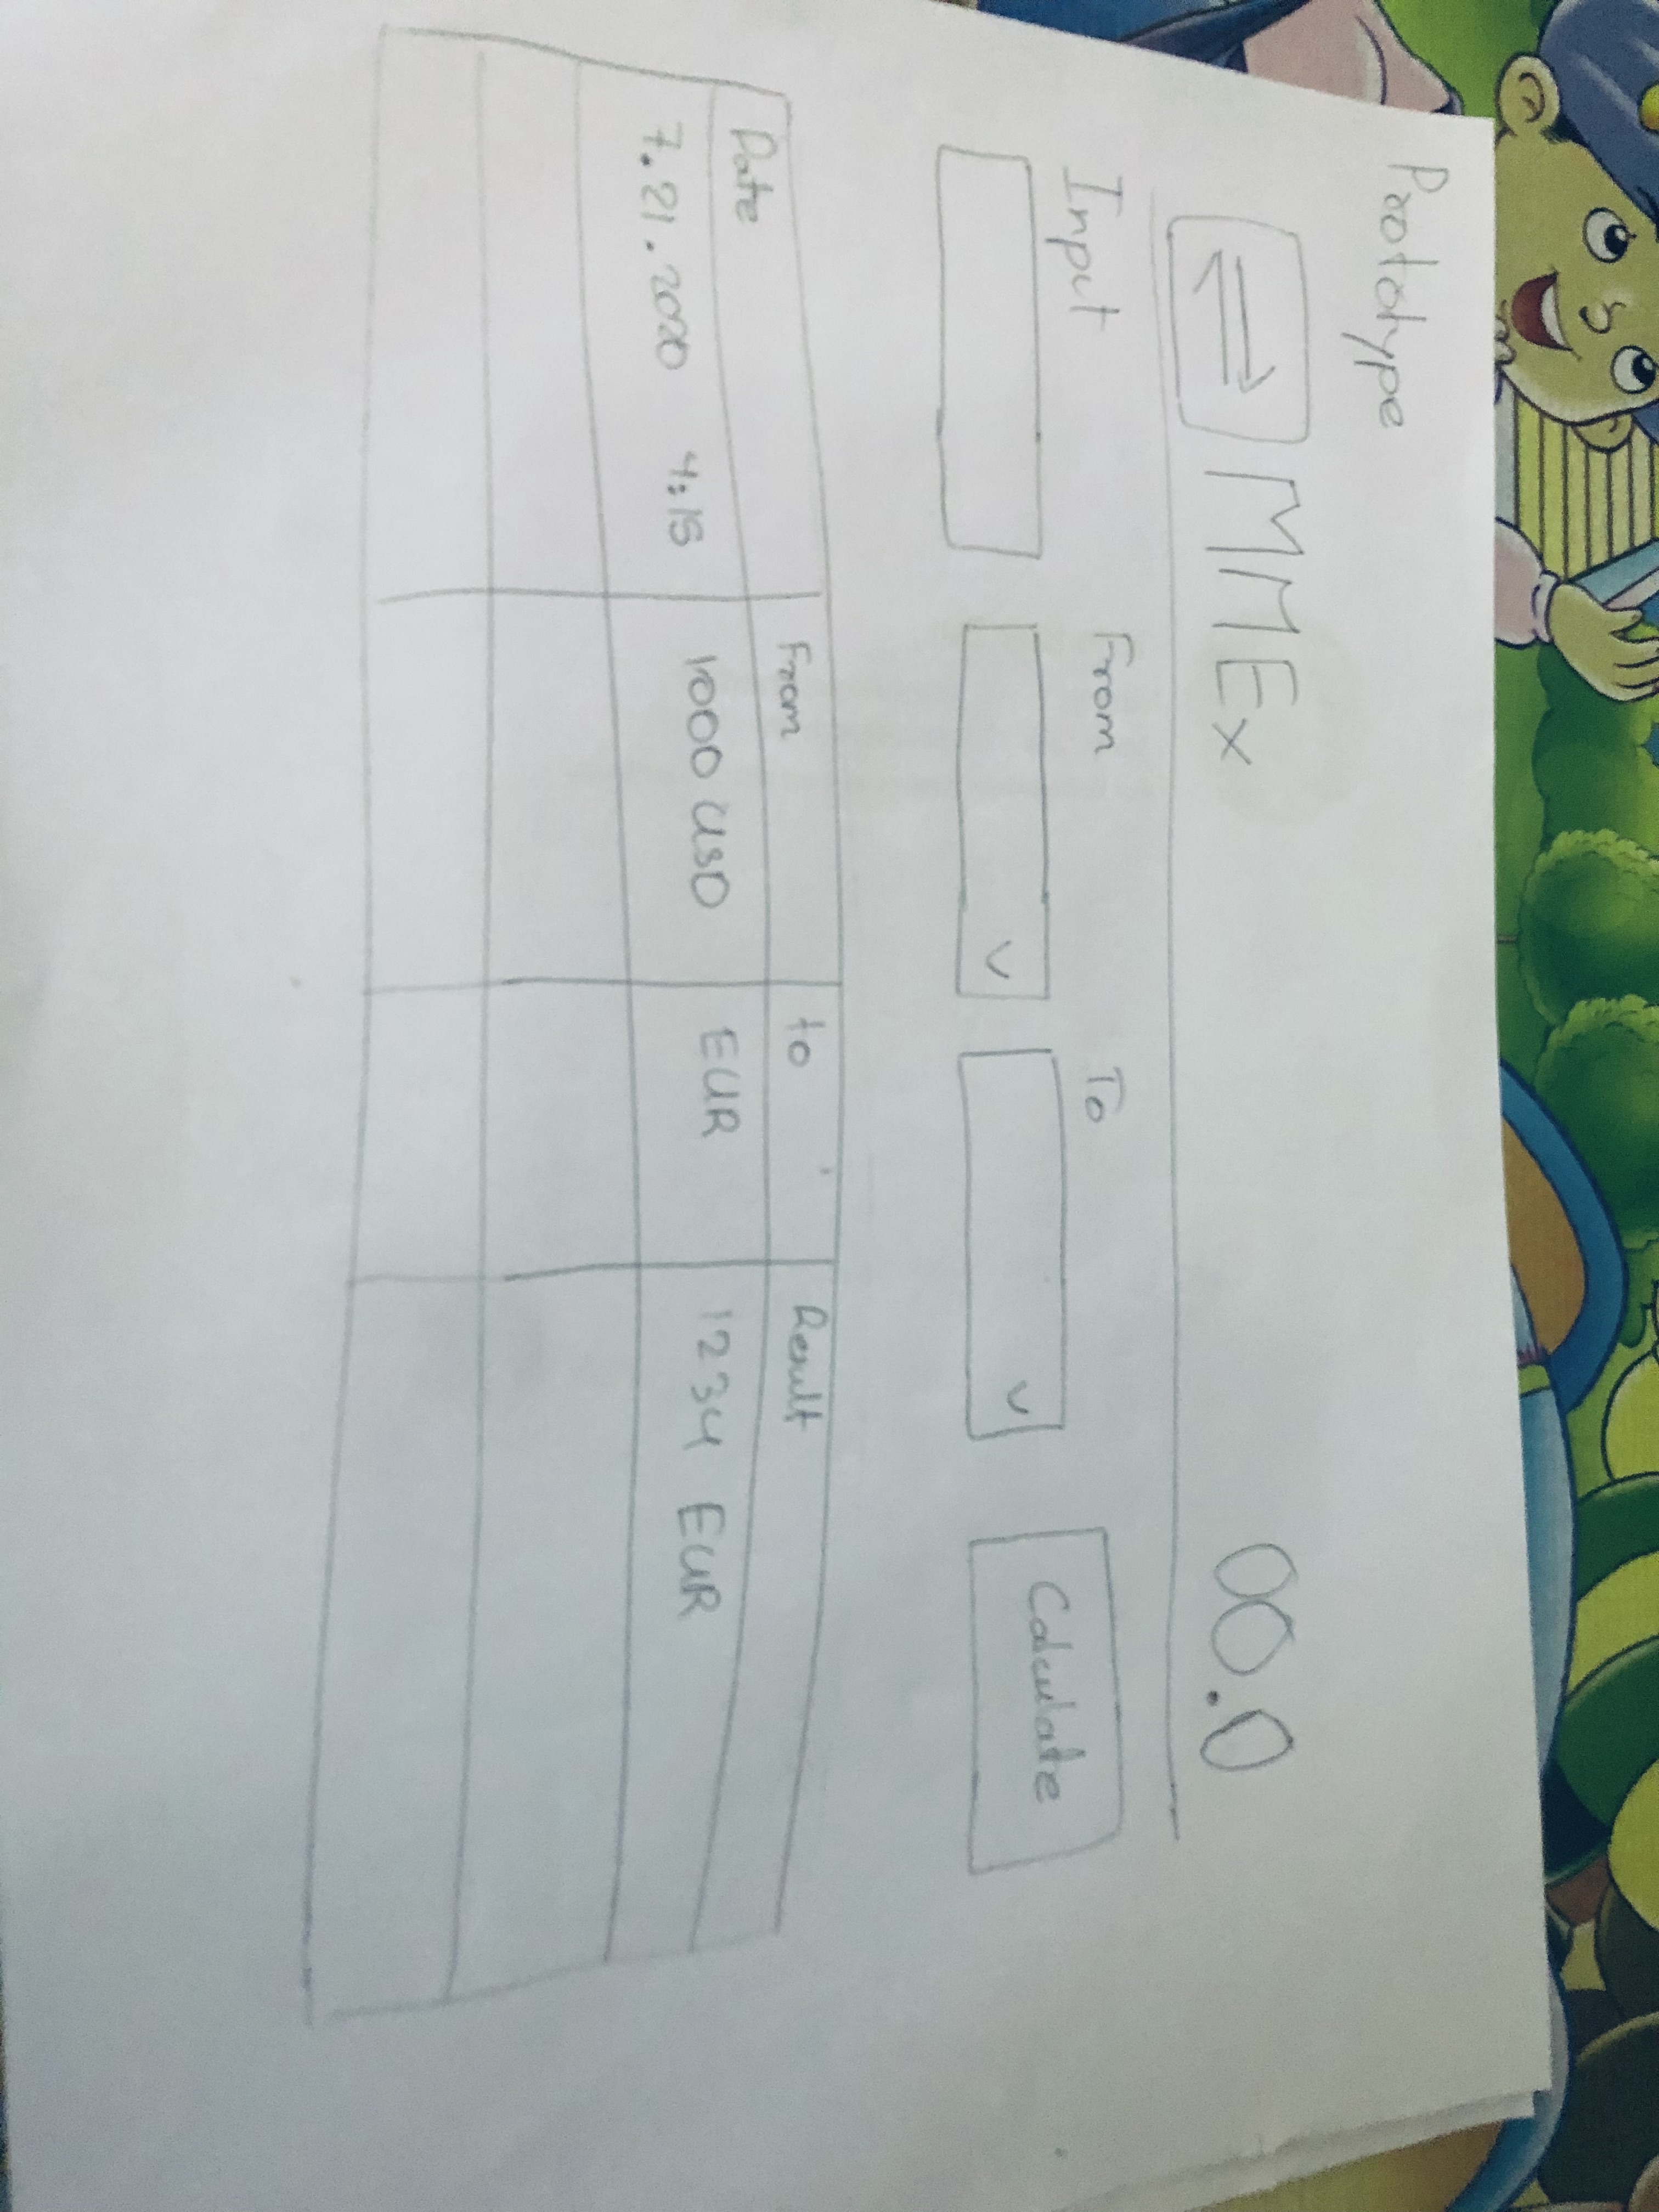 Prototype
MMEx 00.0
Input From To
Calculate
Date From to Result
7.21.2020 4:15 1000 USD EUR 1234 EUR